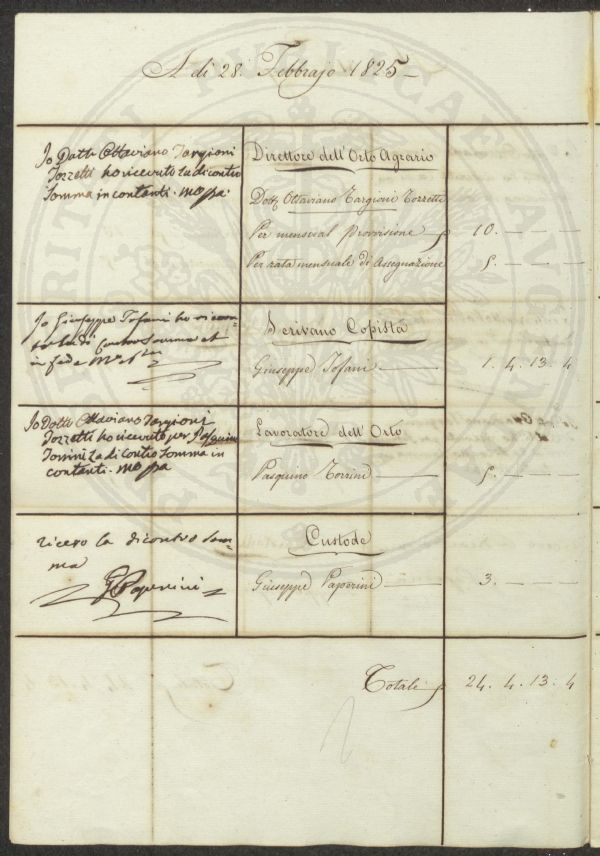 A dì 28. Febbrajo 1825
Io Dotte Ottaviano Targioni
Tozzetti ho ricevuto la di contro
Somma in contanti. mo pa.
Direttore dell'Orto Agrario
Dottr Ottaviano Targioni Tozzetti
Per mensual Provvisione 10. — — —
Per rata mensuale di Assegnazione 5. — — —
Io Giuseppe Tofani ho ricevu=
to la di contro Somma et
in fede
Scrivano Copista
Giuseppe Tofani 1. 4. 13. 4
Io Dotte Ottaviano Targioni
Tozzetti ho ricevuto per Pasquino
Torrini la di contro Somma in
contanti. mo pa
Lavoratore dell'Orto
Pasquino Torrini 5. — — —
ricevo la dicontro som=
ma
G Paperini
Custode
Giuseppe Paperini 3. — — —
Totale 24. 4. 13. 4